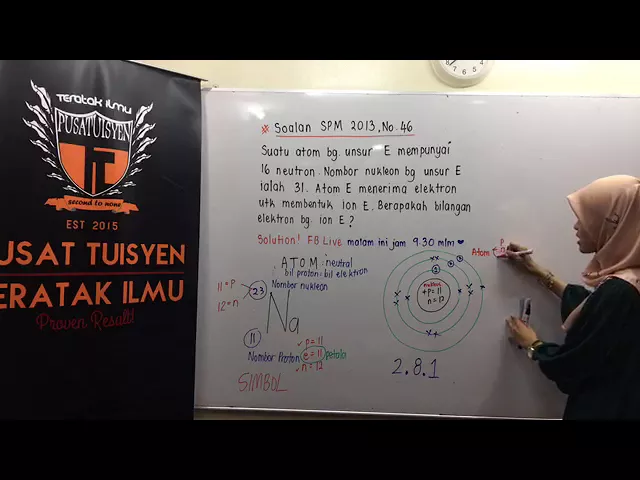 TERATAK ILMU
PUSAT TUISYEN
second to none
EST 2015
PUSAT TUISYEN
TERATAK ILMU
Proven Result!
* Soalan SPM 2013, No. 46
Suatu atom bg. unsur E mempunyai
16 neutron. Nombor nukleon bg unsur E
ialah 31. Atom E menerima elektron
utk membentuk ion E. Berapakah bilangan
elektron bg. ion E?
Solution! FB Live malam ini jam 9.30 mlm
ATOM : neutral
bil proton : bil elektron
Nombor nukleon
11 = p
12 = n
23
Na
11
Nombor Proton
p = 11
e = 11 petala
n = 12
SIMBOL
nukleus
+p = 11
n = 12
2.8.1
Atom
P
n